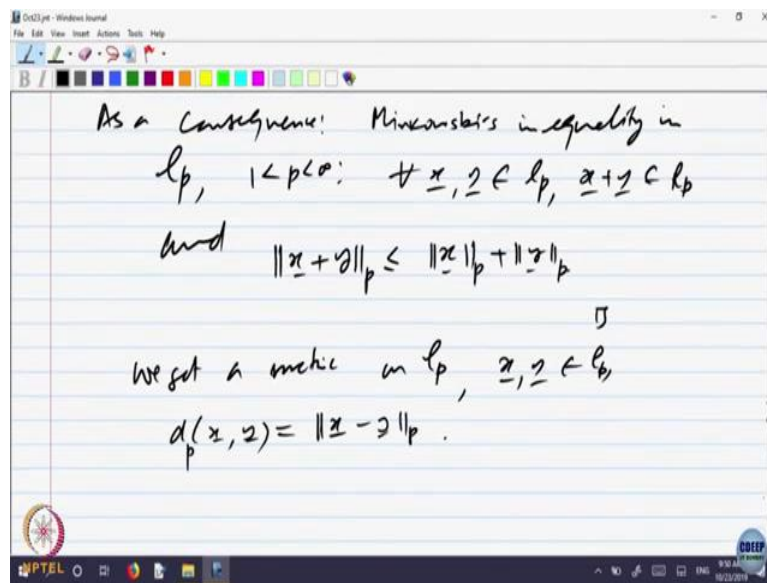 Oct23.jnt - Windows Journal
File Edit View Insert Actions Tools Help
B I
As a Consequence: Minkowski's inequality in
lp, 1<p<∞: ∀ x, y ∈ lp, x+y ∈ lp
and ||x + y||p ≤ ||x||p + ||y||p
We get a metric on lp, x, y ∈ lp,
dp(x, y) = ||x - y||p.
NPTEL
CDEEP
IIT BOMBAY
ENG
9:50 AM
10/23/2019